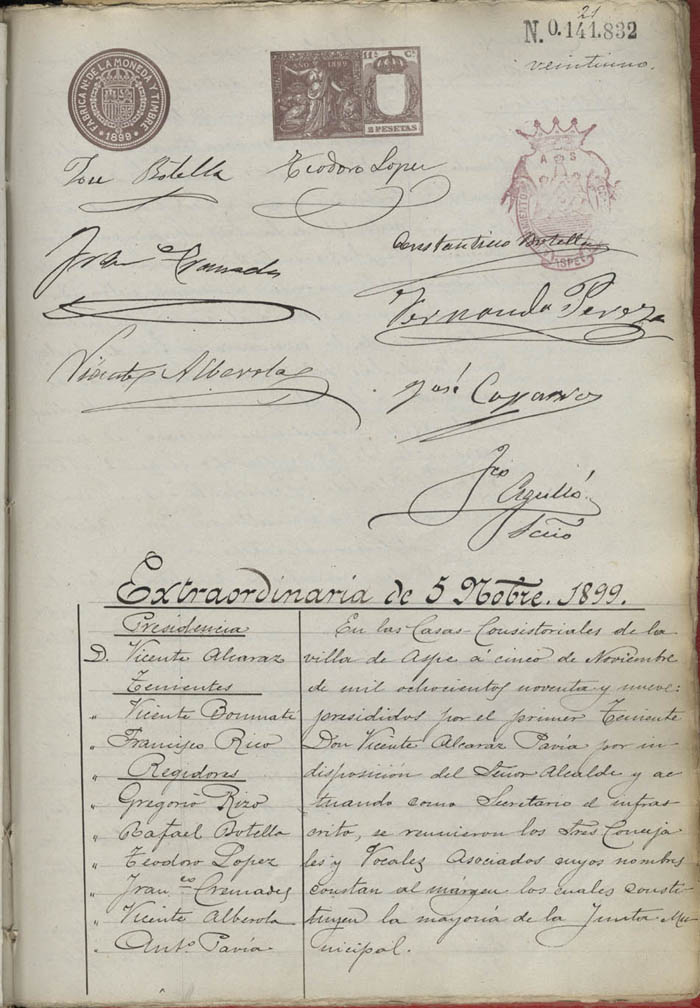 21
N. 0.141.832
veintiuno.
FABRICA Nl. DE LA MONEDA Y TIMBRE
1899
AÑO 1899
11ª Cª
2 PESETAS
A S
ASPE
Jose Botella
Teodoro Lopez
Constantino Botella
Franco. Cremades
Fernando Perez
Vicente Alberola
José Caparros
Fco
Agulló
Scrio
Extraordinaria de 5 Nobre. 1899.
Presidencia
D. Vicente Alcaraz
Tenientes
" Vicente Bonmatí
" Francisco Rico
Regidores
" Gregorio Rizo
" Rafael Botella
" Teodoro Lopez
" Franco. Cremades
" Vicente Alberola
" Anto. Pavia
En las Casas Consistoriales de la
villa de Aspe á cinco de Noviembre
de mil ochocientos noventa y nueve:
presididos por el primer Teniente
Don Vicente Alcaraz Pavía por in
disposición del Señor Alcalde y ac
tuando como Secretario el infras
crito, se reunieron los Sres Conceja
les y Vocales Asociados cuyos nombres
constan al márgen los cuales consti
tuyen la mayoría de la Junta Mu
nicipal.